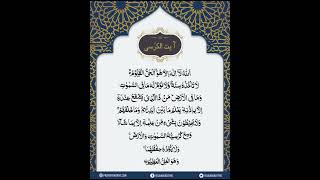 آیت الکرسی
اَللّٰهُ لَاۤ اِلٰهَ اِلَّا هُوَ اَلْحَیُّ الْقَیُّوْمُ
لَا تَاْخُذُهٗ سِنَةٌ وَّلَا نَوْمٌ لَهٗ مَا فِی السَّمٰوٰتِ
وَمَا فِی الْاَرْضِ مَنْ ذَا الَّذِیْ یَشْفَعُ عِنْدَهٗۤ
اِلَّا بِاِذْنِهٖ یَعْلَمُ مَا بَیْنَ اَیْدِیْهِمْ وَمَا خَلْفَهُمْ
وَلَا یُحِیْطُوْنَ بِشَیْءٍ مِّنْ عِلْمِهٖۤ اِلَّا بِمَا شَآءَ
وَسِعَ كُرْسِیُّهُ السَّمٰوٰتِ وَالْاَرْضَ
وَلَا یَـُٔوْدُهٗ حِفْظُهُمَا
وَهُوَ الْعَلِیُّ الْعَظِیْمُ